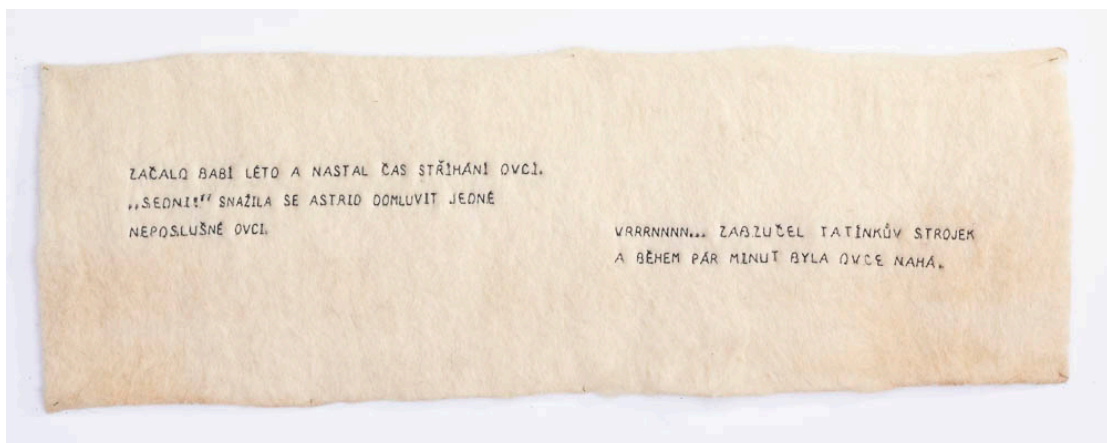 ZAČALO BABÍ LÉTO A NASTAL ČAS STŘÍHÁNÍ OVCÍ.
„SEDNI!“ SNAŽILA SE ASTRID DOMLUVIT JEDNÉ
NEPOSLUŠNÉ OVCI.
VRRRNNNN... ZABZUČEL TATÍNKŮV STROJEK
A BĚHEM PÁR MINUT BYLA OVCE NAHÁ.